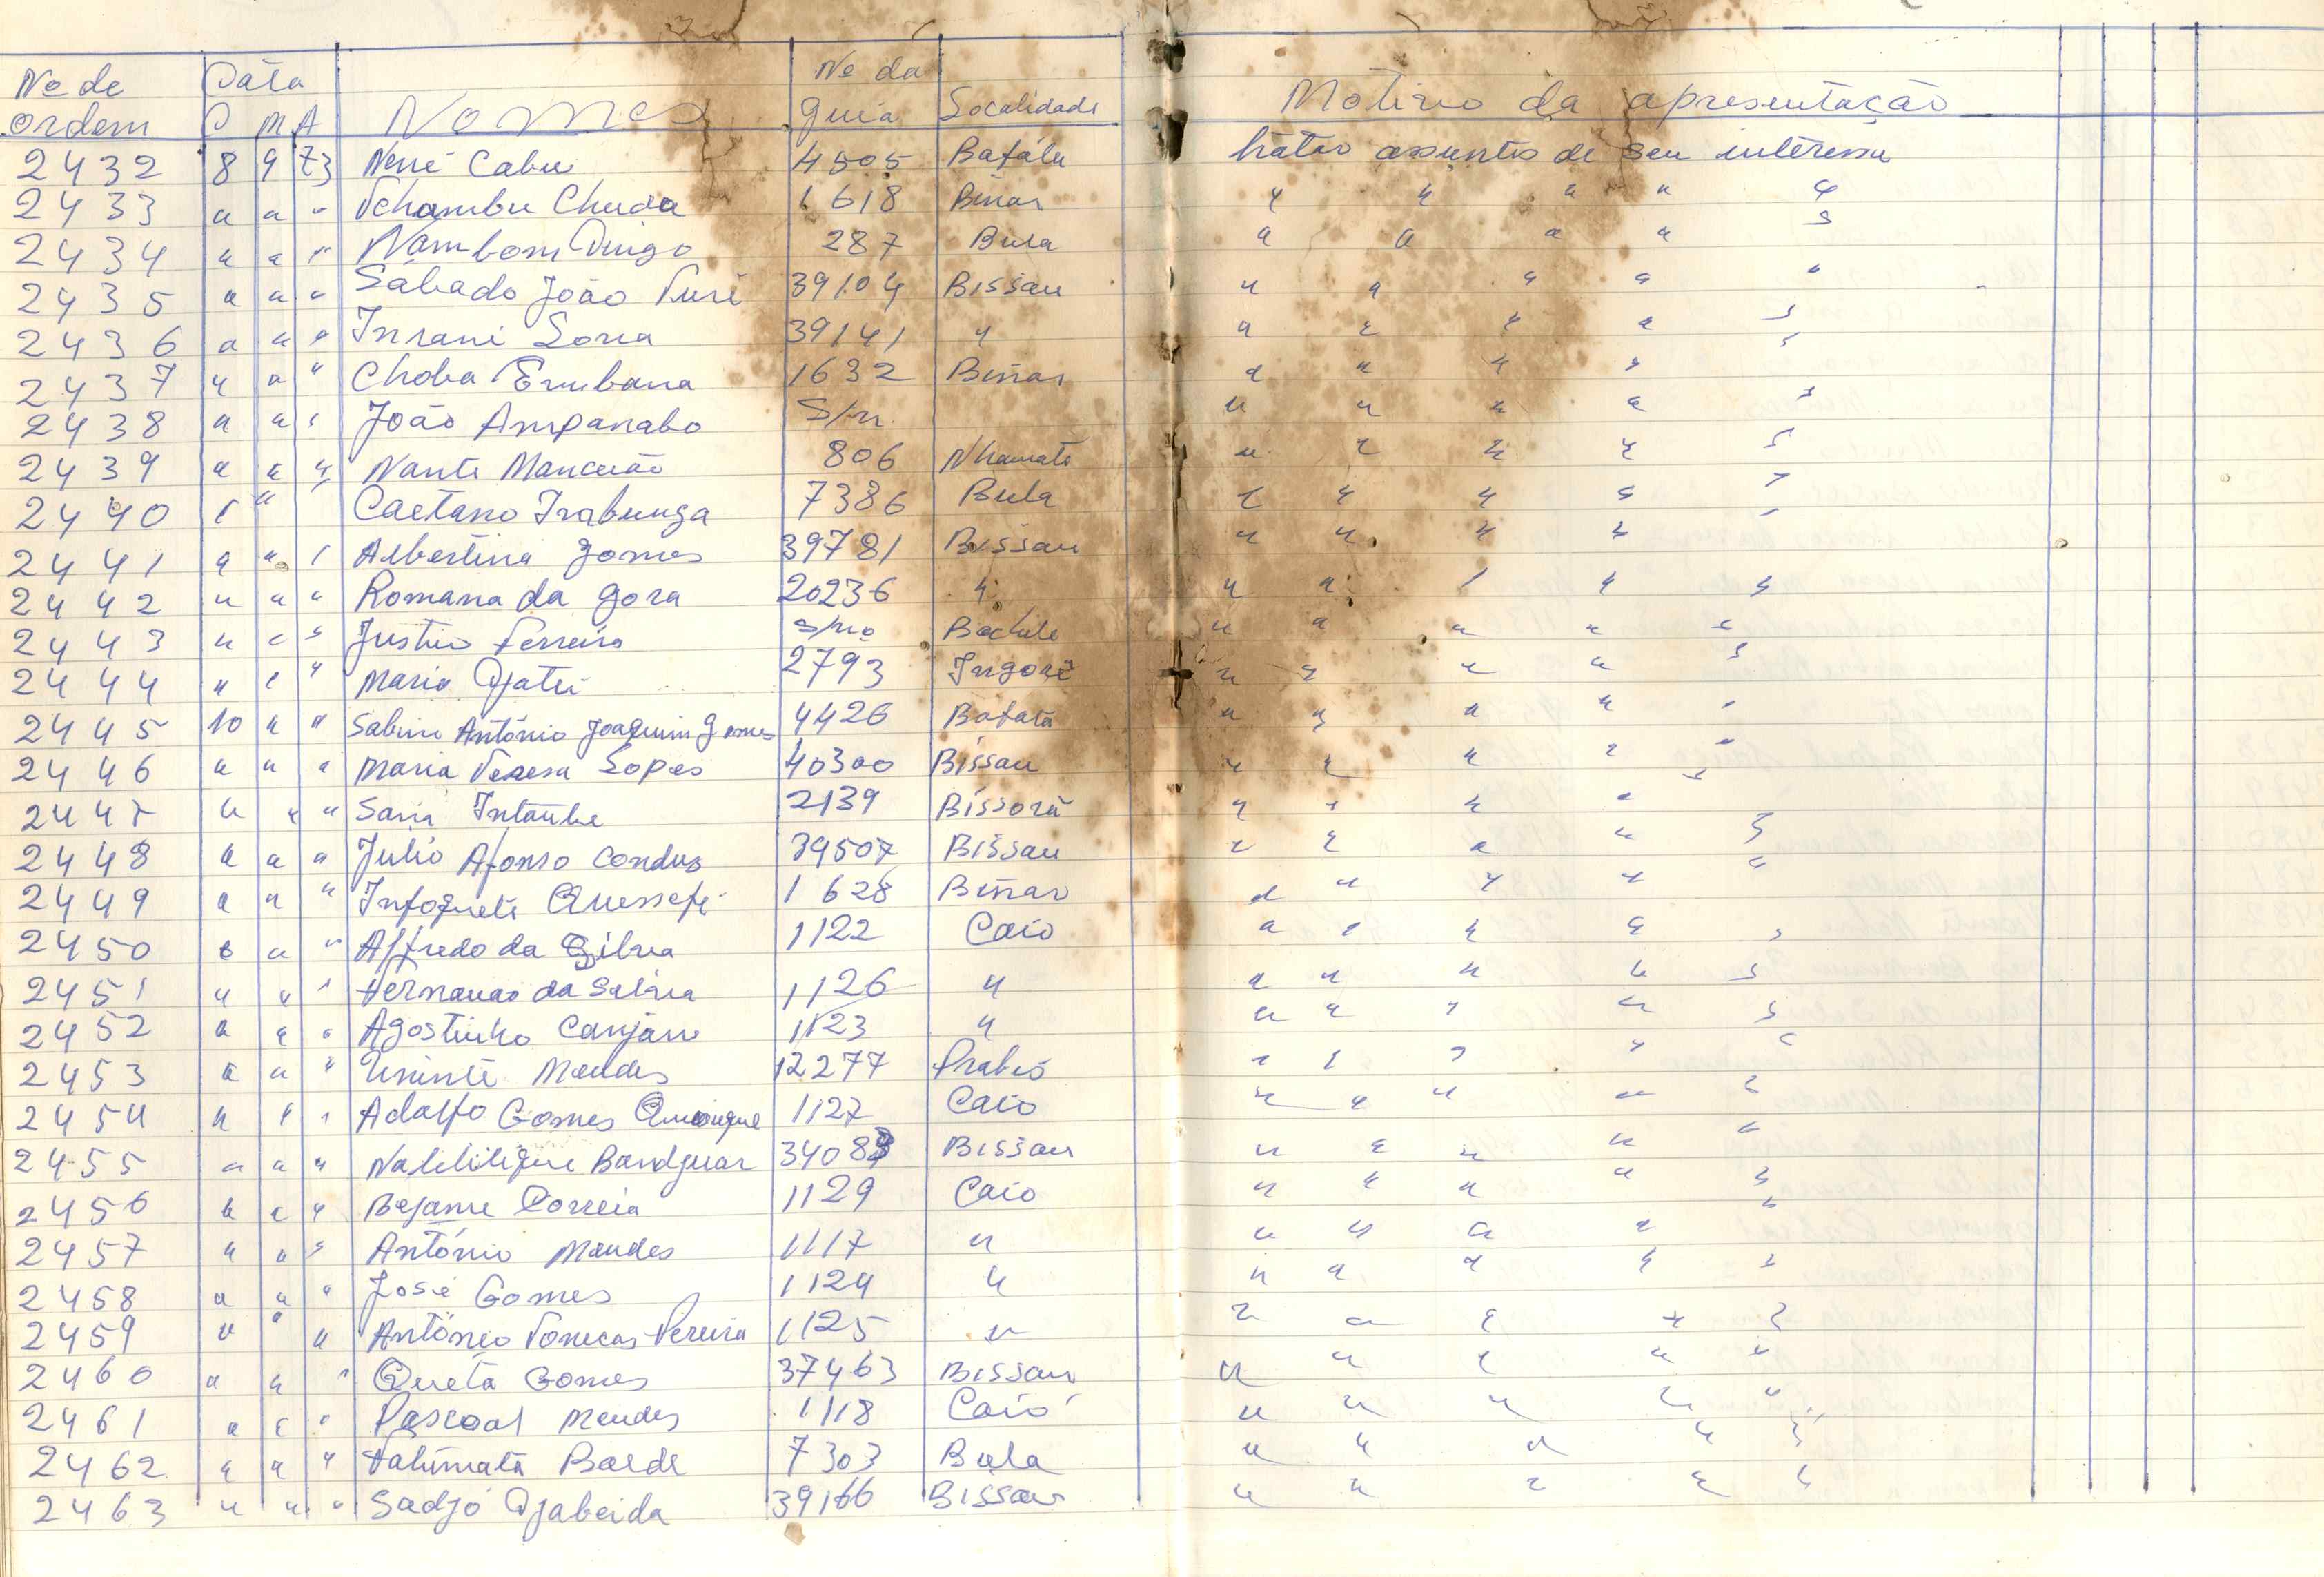 Nº de ordem Data D M A Nomes Nº da guia Localidade Motivo da apresentação
2432 8 9 73 Nené Cabu 4505 Bafáta tratar assuntos de seu interesse
2433 " " " Tchambu Chuda 1618 Binar " " " " "
2434 " " " Nambom Dingo 287 Bula " " " " "
2435 " " " Sabado João Turé 39104 Bissau " " " " "
2436 " " " Inrani Sona 39141 " " " " " "
2437 " " " Choba Embana 1632 Binar " " " " "
2438 " " " João Ampanabo S/n. " " " " "
2439 " " " Nante Mancuão 806 Nhamate " " " " "
2440 " " " Caetano Inbunga 7386 Bula " " " " "
2441 " " " Albertina Gomes 39781 Bissau " " " " "
2442 " " " Romana da Gora 20236 " " " " " "
2443 " " " Justino Ferreira s/nº Bachile " " " " "
2444 " " " Maria Djatu 2793 Ingoré " " " " "
2445 10 " " Sabino António Joaquim Gomes 4426 Bafatá " " " " "
2446 " " " Maria Teresa Lopes 40300 Bissau " " " " "
2447 " " " Sana Intambe 2139 Bissorã " " " " "
2448 " " " Julio Afonso Condus 39507 Bissau " " " " "
2449 " " " Infoquete Quessefe 1628 Binar " " " " "
2450 " " " Alfredo da Silva 1122 Caio " " " " "
2451 " " " Fernanão da Salvia 1126 " " " " " "
2452 " " " Agostinho Canjan 1123 " " " " " "
2453 " " " Uninte Mendes 12277 Prabis " " " " "
2454 " " " Adolfo Gomes 1127 Caio " " " " "
2455 " " " Bandguar Bissau " " " " "
2456 " " " Bejame Correia 1129 Caio " " " " "
2457 " " " António Mendes 1117 " " " " " "
2458 " " " José Gomes 1124 " " " " " "
2459 " " " António Fonecas Pereira 1125 " " " " " "
2460 " " " Quetá Gomes 37463 Bissau " " " " "
2461 " " " Pascoal Mendes 1118 Caió " " " " "
2462 " " " Fatimatá Balde 7303 Bula " " " " "
2463 " " " Sadjó Djabeida 39166 Bissau " " " " "